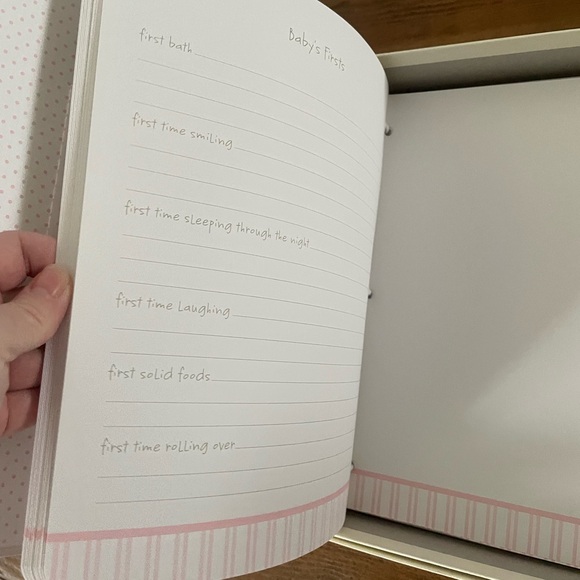 Baby's Firsts
first bath
first time smiling
first time sleeping through the night
first time laughing
first solid foods
first time rolling over